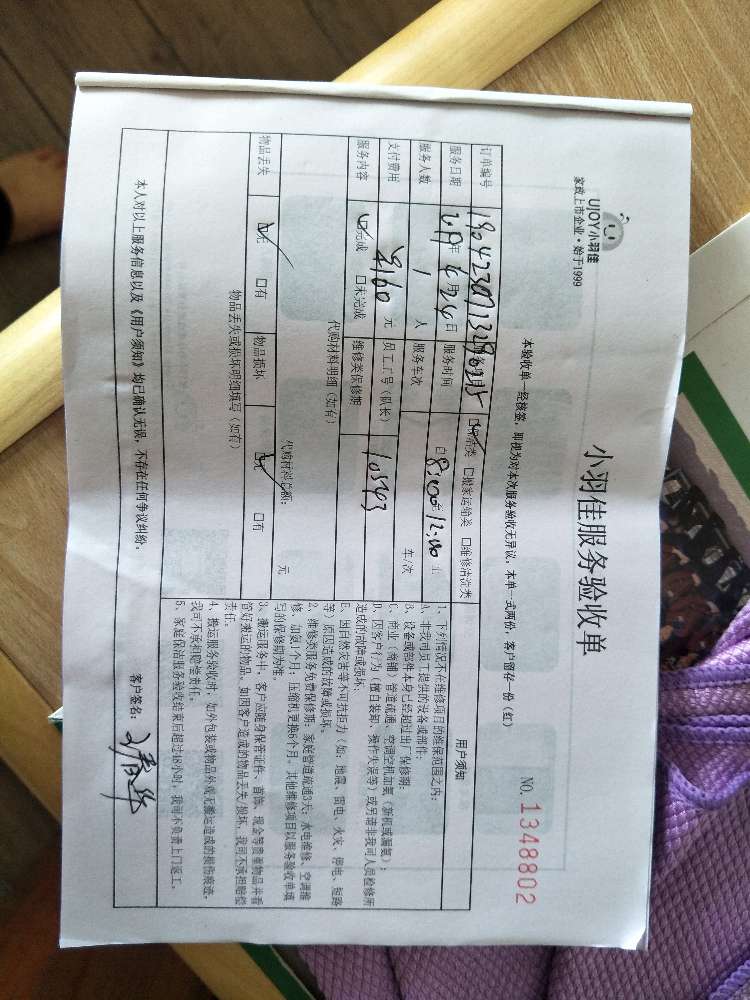 UJOY小羽佳
家政上市企业·始于1999
小羽佳服务验收单
NO. 1348802
本验收单一经核签,即视为对本次服务验收无异议,本单一式两份,客户留存一份(红)
订单编号 类 □搬家运输类 □维修清洗类
服务日期 年 4月24日 服务时间 自8:00至12:00止
服务人数 1 人 服务车次 车/次
支付费用 ¥160 元 员工工号(队长) 10543
服务内容 ☑完成 □未完成 维修类保修期
代购材料明细(如有)
代购材料总额: 元
物品丢失 ☑无 □有 物品损坏 ☑无 □有
物品丢失或损坏明细填写(如有)
用户须知
1、下列情况不在维修项目的维保范围之内:
A、非我司员工提供的设备或部件;
B、设备或部件本身已经超过出厂保修期;
C、商业(商铺)管道疏通、空调空机加氨(新机或漏氨);
D、因客户行为(擅自装卸、操作失误等)或另请非我司人员检修所
造成的故障或损坏;
E、因自然灾害等不可抗拒力(如:地震、雷电、火灾、停电、短路
等)原因造成的故障或损坏。
2、维修类服务免费保修期:家庭管道疏通3天;水电维修、空调维
修、加氨1个月;压缩机更换6个月。其他维修项目以服务验收单填
写的保修期为准。
3、搬运服务中,客户应随身保管证件、首饰、现金等贵重物品并看
管好搬运的物品,如因客户造成的物品丢失/损坏,我司不承担赔偿
责任。
4、搬运服务验收时,如外包装或物品外观无搬运造成的损伤痕迹,
我司不承担赔偿责任。
5、家庭保洁服务验收结束后超过48小时,我司不负责上门返工。
本人对以上服务信息以及《用户须知》均已确认无误,不存在任何争议纠纷。
客户签名: